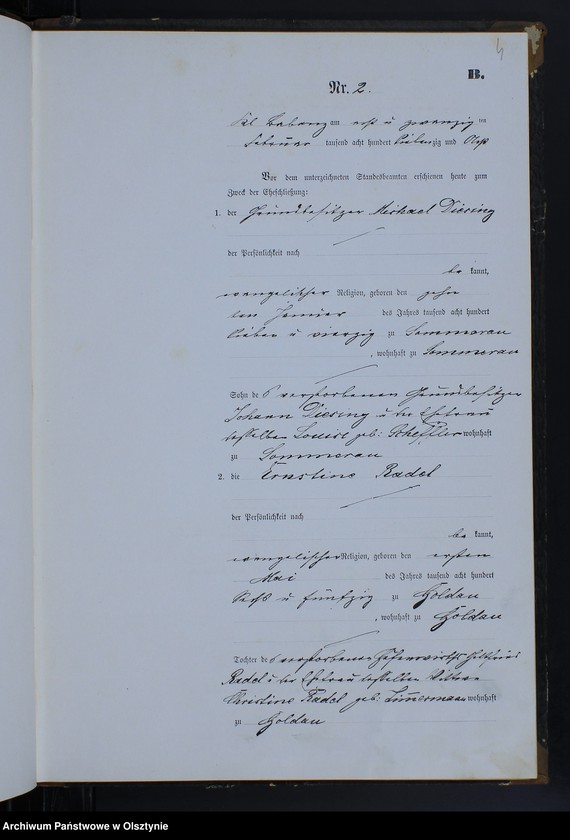 4
B.
Nr. 2.
Kl Babenz am acht u zwanzig ten
Februar tausend acht hundert siebenzig und acht
Vor dem unterzeichneten Standesbeamten erschienen heute zum
Zweck der Eheschließung:
1. der Grundbesitzer Michael Diesing
der Persönlichkeit nach
be kannt,
evangelischer Religion, geboren den zehn
ten Januar des Jahres tausend acht hundert
sieben u vierzig zu Sommerau
, wohnhaft zu Sommerau
Sohn des verstorbenen Grundbesitzer
Johann Diesing u der Ehefrau
desselben Louise geb: Scheffler wohnhaft
zu Sommerau
2. die Ernstine Radel
der Persönlichkeit nach
be kannt,
evangelischer Religion, geboren den ersten
Mai des Jahres tausend acht hundert
sechs u fünfzig zu Goldau
, wohnhaft zu Goldau
Tochter des verstorbenen
Radel u der Ehefrau desselben
Christine Radel geb. Zimmermann wohnhaft
zu Goldau
Archiwum Państwowe w Olsztynie